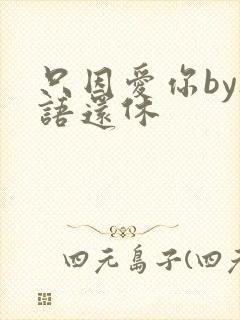 只因愛你by
語還休
四元島子(四元